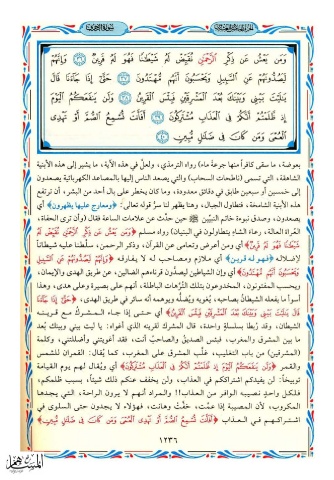 وَمَن يَعْشُ عَن ذِكْرِ الرَّحْمَٰنِ نُقَيِّضْ لَهُ شَيْطَانًا فَهُوَ لَهُ قَرِينٌ ﴿٣٦﴾ وَإِنَّهُمْ
لَيَصُدُّونَهُمْ عَنِ السَّبِيلِ وَيَحْسَبُونَ أَنَّهُم مُّهْتَدُونَ ﴿٣٧﴾ حَتَّىٰ إِذَا جَاءَنَا قَالَ
يَا لَيْتَ بَيْنِي وَبَيْنَكَ بُعْدَ الْمَشْرِقَيْنِ فَبِئْسَ الْقَرِينُ ﴿٣٨﴾ وَلَن يَنفَعَكُمُ الْيَوْمَ
إِذ ظَّلَمْتُمْ أَنَّكُمْ فِي الْعَذَابِ مُشْتَرِكُونَ ﴿٣٩﴾ أَفَأَنتَ تُسْمِعُ الصُّمَّ أَوْ تَهْدِي
الْعُمْيَ وَمَن كَانَ فِي ضَلَالٍ مُّبِينٍ ﴿٤٠﴾
بعوضة، ما سقى كافراً منها جرعة ماء) رواه الترمذي، ولعلَّ في هذه الآية، ما يشير إلى هذه الأبنية
الشاهقة، التي تسمى (ناطحات السحاب) والتي يصعد الناس إليها بالمصاعد الكهربائية يصعدون
إلى خمسين أو سبعين طابق في دقائق معدودة، وما كان يخطر على بال أحد من البشر، أن ترتفع
هذه الأبنية الشامخة، فتطاول الجبال، وهنا يظهر لنا سرُّ قوله تعالى: ﴿ومعارج عليها يظهرون﴾ أي
يصعدون، وصدق نبوءة خاتم النبيين ﷺ حين حدَّث عن علامات الساعة فقال (وأن ترى الحفاة،
العُراة العالة، رعاء الشاءِ يتطاولون في البنيان) رواه مسلم ﴿وَمَن يَعْشُ عَن ذِكْرِ الرَّحْمَٰنِ نُقَيِّضْ لَهُ
شَيْطَانًا فَهُوَ لَهُ قَرِينٌ﴾ أي ومن أعرض وتعامى عن القرآن، وذكر الرحمن، سلَّطنا عليه شيطاناً
لإضلاله ﴿فهو له قرين﴾ أي ملازم ومصاحب له لا يفارقه ﴿وَإِنَّهُمْ لَيَصُدُّونَهُمْ عَنِ السَّبِيلِ
وَيَحْسَبُونَ أَنَّهُم مُّهْتَدُونَ﴾ أي وإن الشياطين ليصدُّون قرناءهم الضالين، عن طريق الهدى والإيمان،
ويحسب المفتونون، المخدوعون بتلك النزغات الباطلة، أنهم على بصيرة وعلى هدى، وهذا
أسوأ ما يفعله الشيطانُ بصاحبه، يُغويه ويُضلُّه ويوهمه أنه سائر في طريق الهدى، ﴿حَتَّىٰ إِذَا جَاءَنَا
قَالَ يَا لَيْتَ بَيْنِي وَبَيْنَكَ بُعْدَ الْمَشْرِقَيْنِ فَبِئْسَ الْقَرِينُ﴾ أي حتى إذا جاء المشرك مع قرينه
الشيطان، وقد رُبطا بسلسلة واحدة، قال المشرك لقرينه الذي أغواه: يا ليت بيني وبينك بُعد
ما بين المشرق والمغرب، فبئس الصديقُ والصاحبُ أنت، فقد أغويتني وأضللتني، وكلمة
(المشرقين) من باب التغليب، غُلِّب المشرق على المغرب، كما يُقال: القمران للشمس
والقمر ﴿وَلَن يَنفَعَكُمُ الْيَوْمَ إِذ ظَّلَمْتُمْ أَنَّكُمْ فِي الْعَذَابِ مُشْتَرِكُونَ﴾ أي ويُقال لهم يوم القيامة
توبيخاً: لن يفيدكم اشتراككم في العذاب، ولن يخفف عنكم ذلك شيئاً، بسبب ظلمكم،
فلكل واحدٍ نصيبه الوافر من العذاب!! والمراد أنهم لا يرون الراحة، التي يجدها
المكروب، لأن المصيبة إذا عمَّت، خفَّت وهانت، فهؤلاء لا يجدون حتى السلوى في
اشتراكهم في العذاب ﴿أَفَأَنتَ تُسْمِعُ الصُّمَّ أَوْ تَهْدِي الْعُمْيَ وَمَن كَانَ فِي ضَلَالٍ مُّبِينٍ﴾
١٢٣٦